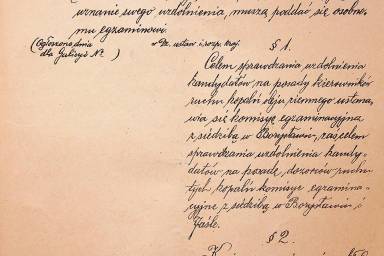 uznanie swego uzdolnienia, muszą poddać się osobne-
mu egzaminowi.
(Ogłoszono dnia w Dz. ustaw i rozp. kraj.
dla Galicyi Nr. )
§ 1.
Celem sprawdzania uzdolnienia
kandydatów na posady kierowników
ruchu kopalń oleju ziemnego ustana-
wia się komisyę egzaminacyjną
z siedzibą w Borysławiu, zaś celem
sprawdzania uzdolnienia kandy-
datów na posadę dozorców ruchu
tych kopalń komisye egzamina-
cyjne z siedzibą w Borysławiu i
Jaśle.
§ 2.